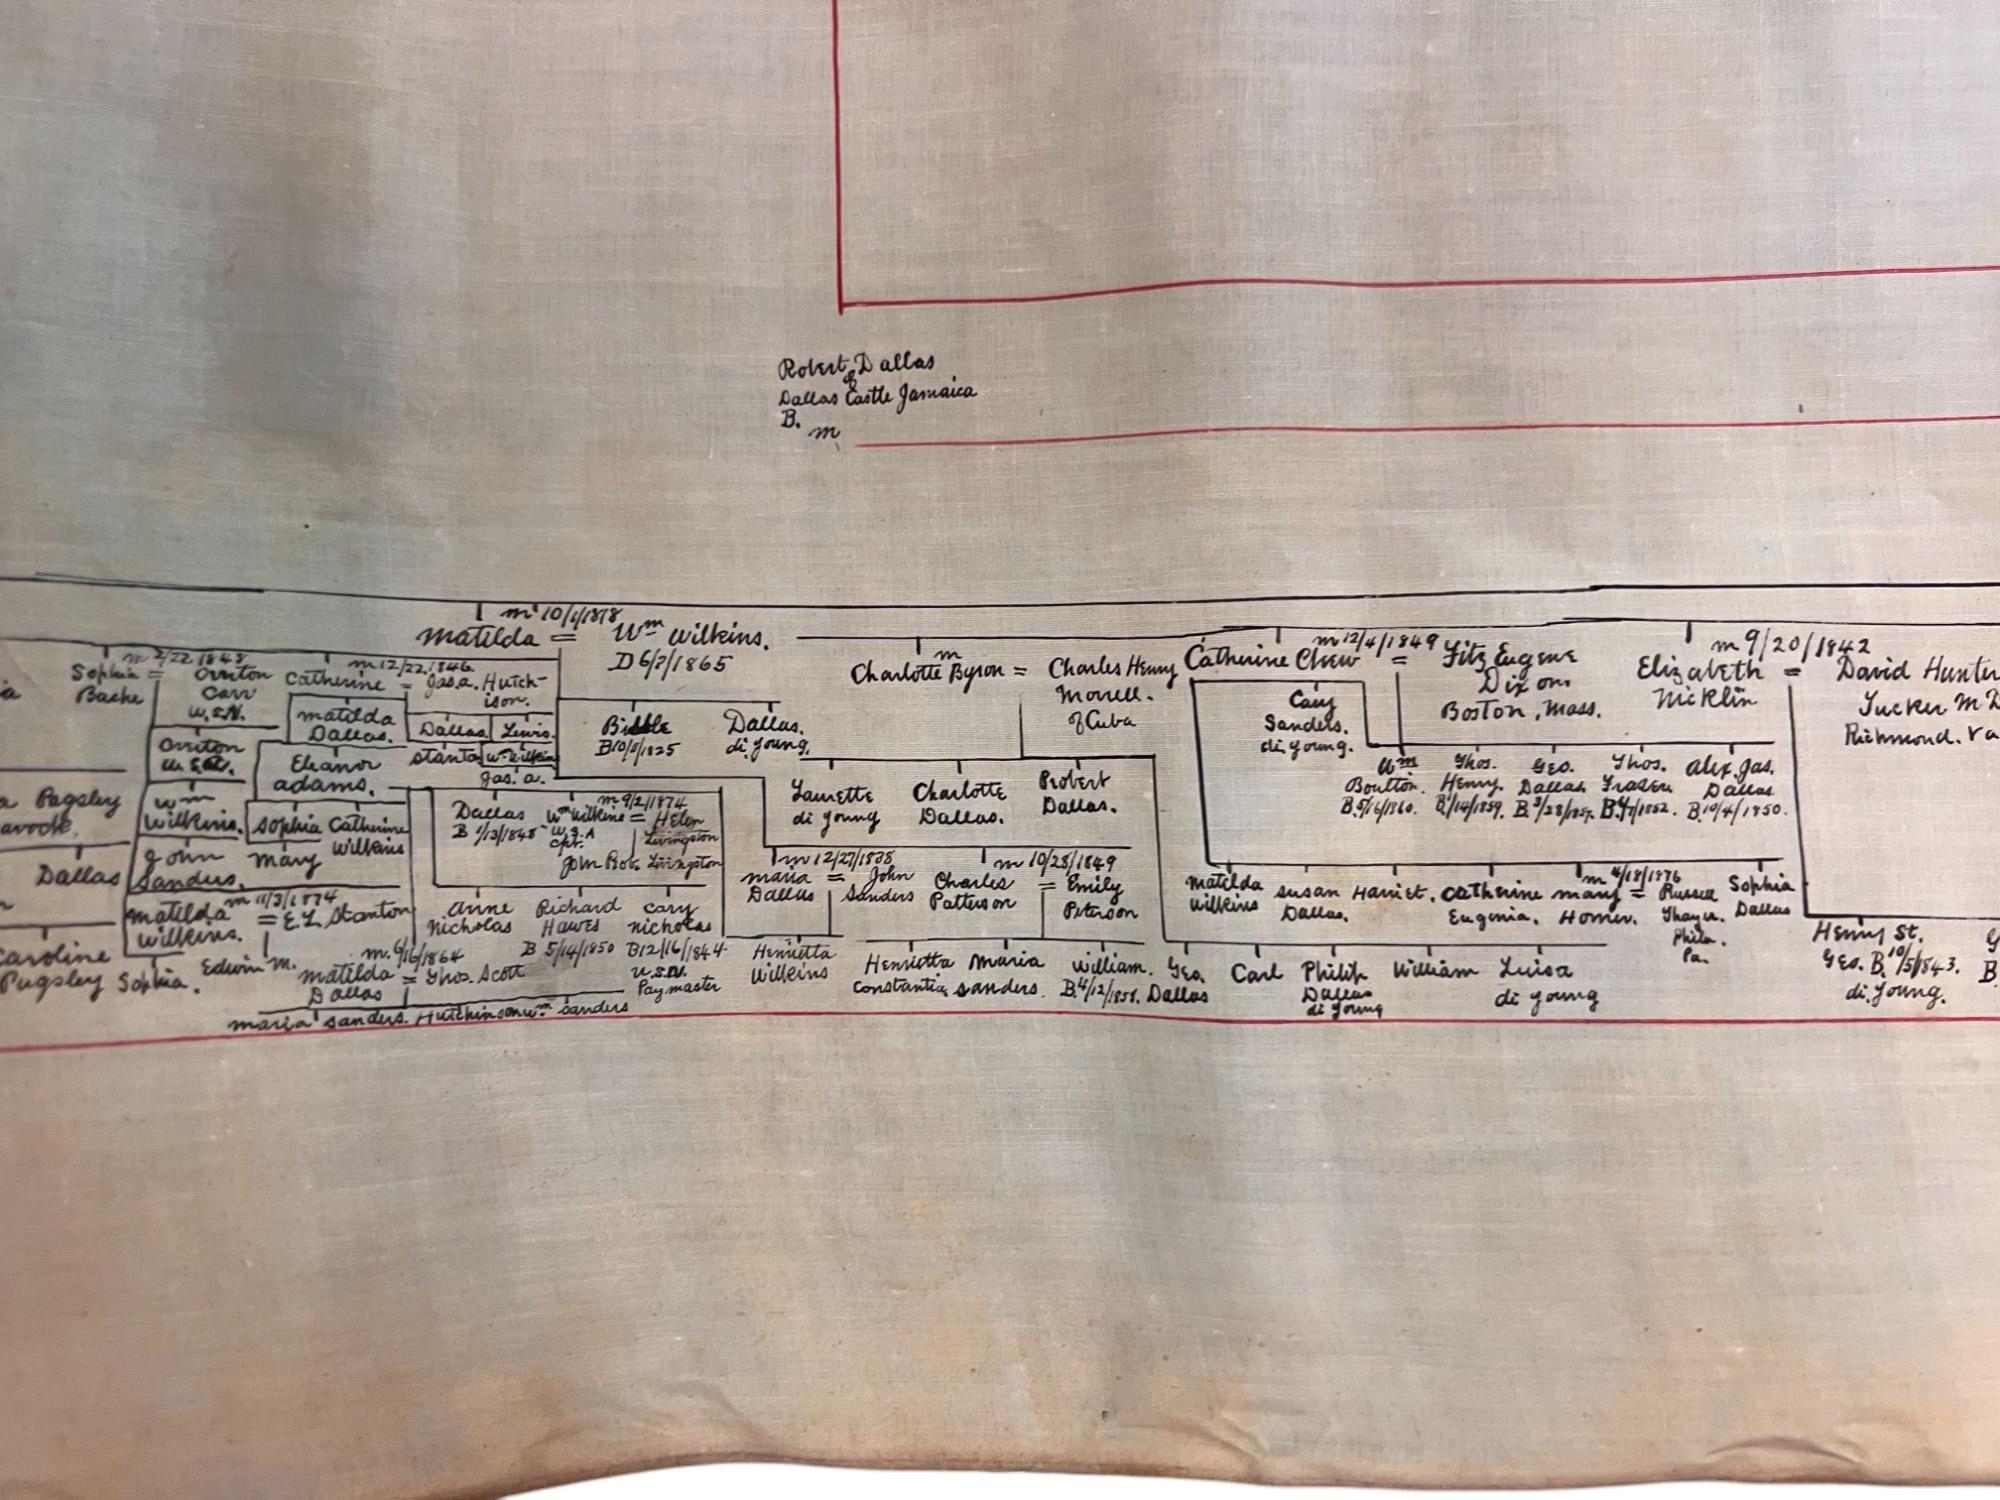 Robert Dallas
of
Dallas Castle Jamaica
B.
m
m 10/1/1818
Matilda = Wm Wilkins.
D 6/ /1865
m 2/22 1848
Sophia = Overton
Bache Carr
U.S.N.
m 12/22.1846.
Catherine = Jas. A. Hutch-
ison.
Matilda
Dallas.
Dallas Lewis.
Stanton Wm Wilkins
Jas. A.
Overton
Eleanor
Adams.
Wm
Wilkins.
Sophia Catherine
Mary Wilkins
John
Sanders.
m 11/3/1874
Matilda = E L Stanton
Wilkins.
Sophia. Edwin M.
m. 6/16/1864
Matilda = Thos. Scott
Dallas
Maria Sanders. Hutchinson Wm Sanders
Pugsley
Dallas
Caroline
Pugsley
Biddle
B 10/ /1825
Dallas.
di young.
Dallas
B 1/13/1848
m 9/2/1874
Wm Wilkins = Helen
U.S.A Livingston
Cpt.
John Rob. Livingston
Anne
Nicholas
Richard
Hawes
B 5/14/1850
Cary
Nicholas
B 12/16/1844
U.S.N.
Paymaster
Henrietta
Wilkins
m
Charlotte Byron = Charles Henry
Morrell.
of Cuba
Laurette
di young
Charlotte
Dallas.
Robert
Dallas.
m 12/27/1838
Maria = John
Dallas Sanders
m 10/25/1849
Charles = Emily
Patterson Peterson
Henrietta
Constantia
Maria
Sanders.
William.
B. 4/12/1858.
Geo.
Dallas
Carl
Philip
Dallas
di young
William
Luisa
di young
m 12/4/1849
Catherine Chew = Fitz Eugene
Dixon
Boston, Mass.
Cary
Sanders.
di. young.
Wm
Boulton.
B. 5/16/1860.
Thos.
Henry.
B. 1/14/1859.
Geo.
Dallas
B. 3/28/
Thos.
Fraser
B. /1852.
Alex. Jas.
Dallas
B. 10/4/1850.
Matilda
Wilkins
Susan
Dallas.
Harriet.
Catherine
Eugenia.
m 4/18/1876
Mary = Russell
Homer. Thayer.
Phila.
Pa.
Sophia
Dallas
m 9/20/1842
Elizabeth = David Hunter
Nicklin Tucker M D
Richmond. Va
Henry St.
Geo. B. 10/5/1843.
di. young.
B.